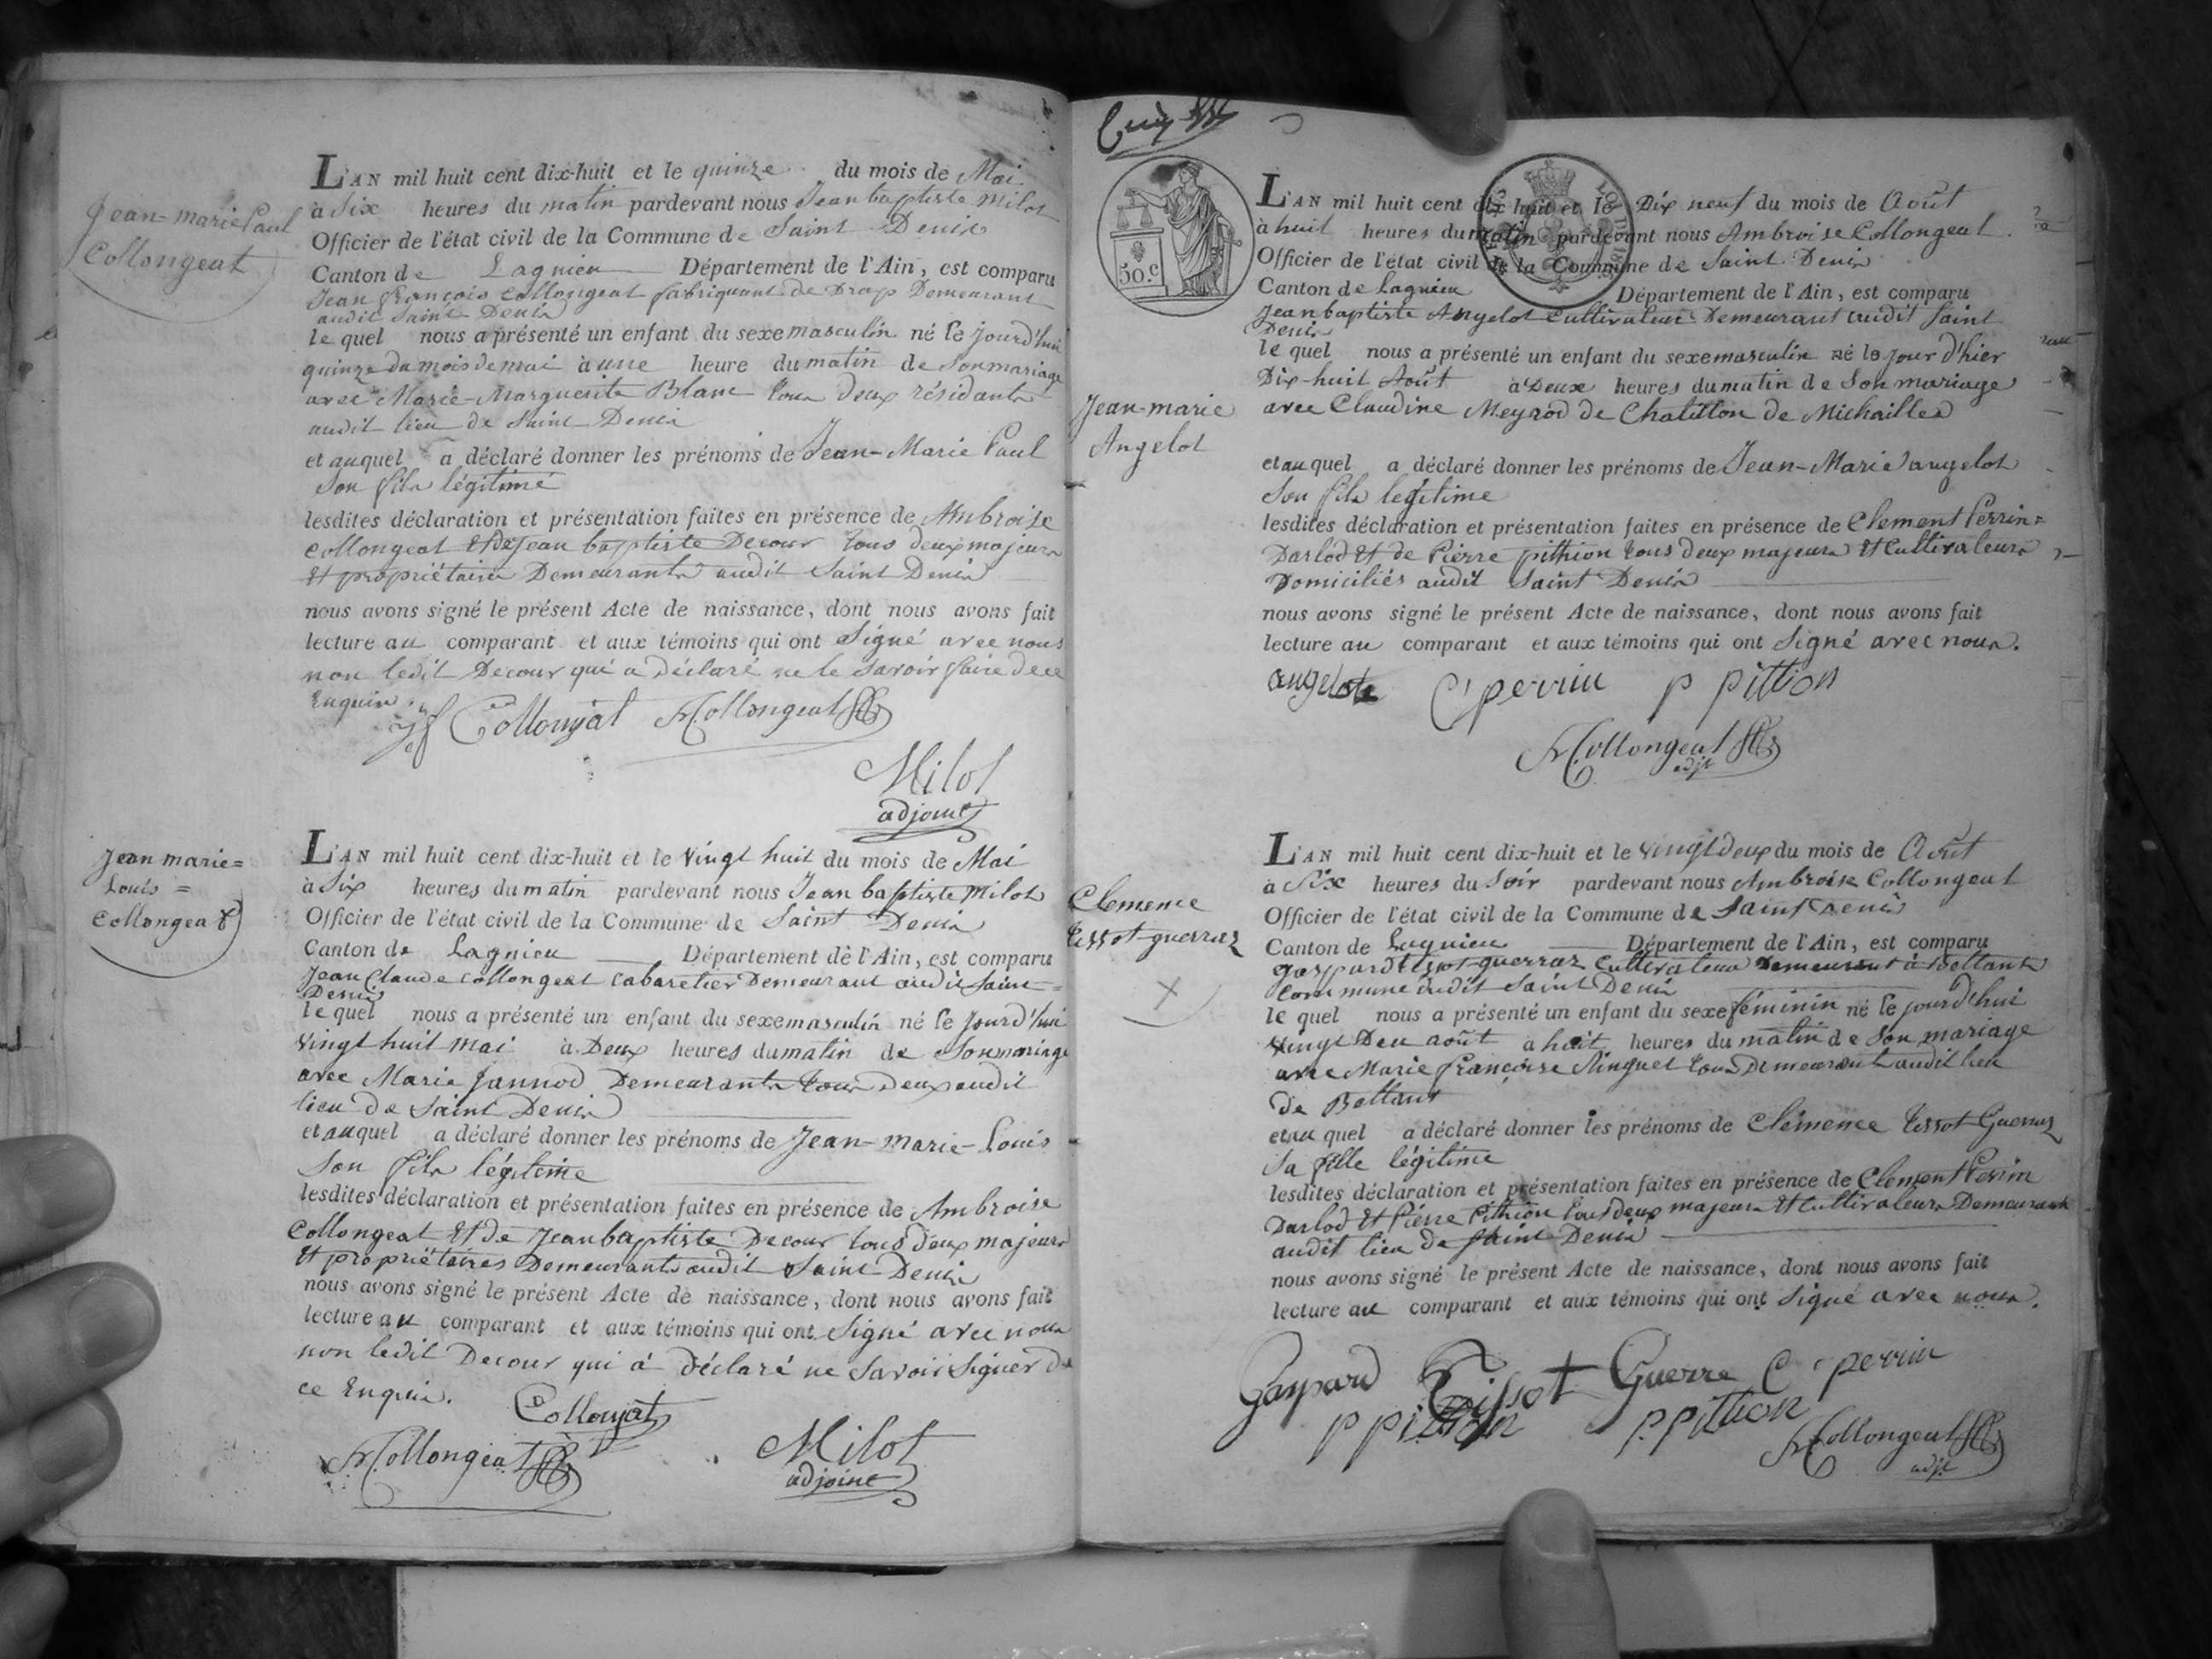 Jean-marie Paul
Collongeat
L'AN mil huit cent dix-huit et le quinze du mois de Mai
à Six heures du matin pardevant nous Jean baptiste Milot
Officier de l'état civil de la Commune de Saint Denis
Canton de Lagnieu Département de l'Ain, est comparu
Jean françois Collongeat fabriquant de Drap Demeurant
audit Saint Denis
le quel nous a présenté un enfant du sexe masculin né le jourd'hui
quinze du mois de mai à une heure du matin de son mariage
avec Marie-Marguerite Blanc tous deux résidants
audit lieu de Saint Denis
et auquel a déclaré donner les prénoms de Jean-Marie Paul
Son fils légitime
lesdites déclaration et présentation faites en présence de Ambroise
Collongeat et de Jean baptiste Decour tous deux majeurs
et propriétaires Demeurants audit Saint Denis
nous avons signé le présent Acte de naissance, dont nous avons fait
lecture au comparant et aux témoins qui ont Signé avec nous
non ledit Decour qui a déclaré ne le savoir faire de ce
Enquis.
jf Collongat A Collongeat
Milot
adjoint
Jean marie=
Louis =
Collongeat
L'AN mil huit cent dix-huit et le vingt huit du mois de Mai
à Six heures du matin pardevant nous Jean baptiste Milot
Officier de l'état civil de la Commune de Saint Denis
Canton de Lagnieu Département de l'Ain, est comparu
Jean Claude Collongeat Cabaretier Demeurant audit Saint=
Denis
le quel nous a présenté un enfant du sexe masculin né le jourd'hui
vingt huit mai à Deux heures du matin de Son mariage
avec Marie Jannod Demeurants tous deux audit
lieu de Saint Denis
et auquel a déclaré donner les prénoms de Jean-marie-Louis
Son fils légitime
lesdites déclaration et présentation faites en présence de Ambroise
Collongeat et de Jean baptiste Decour tous deux majeurs
et propriétaires Demeurants audit Saint Denis
nous avons signé le présent Acte de naissance, dont nous avons fait
lecture au comparant et aux témoins qui ont Signé avec nous
non ledit Decour qui à déclaré ne Savoir Signer de
ce Enquis.
Collongat
A Collongeat
Milot
adjoint
50.c
Jean-marie
Angelot
L'AN mil huit cent dix huit et le Dix neuf du mois de Août
à huit heures du matin pardevant nous Ambroise Collongeat
Officier de l'état civil de la Commune de Saint Denis
Canton de Lagnieu Département de l'Ain, est comparu
Jean baptiste Angelot Cultivateur Demeurant audit Saint
Denis
le quel nous a présenté un enfant du sexe masculin né le jour d'hier
Dix-huit Août à Deux heures du matin de Son mariage
avec Claudine Meyrod de Chatillon de Michailles
et au quel a déclaré donner les prénoms de Jean-Marie angelot
Son fils légitime
lesdites déclaration et présentation faites en présence de Clement Perrin=
Darlod et de Pierre pithion tous deux majeurs et Cultivateurs
Domiciliés audit Saint Denis
nous avons signé le présent Acte de naissance, dont nous avons fait
lecture au comparant et aux témoins qui ont Signé avec nous.
angelot C perrin p pittion
A Collongeat
adjt
Clemence
tissot-guerraz
X
L'AN mil huit cent dix-huit et le vingt deux du mois de Août
à Six heures du Soir pardevant nous Ambroise Collongeat
Officier de l'état civil de la Commune de Saint Denis
Canton de Lagnieu Département de l'Ain, est comparu
gaspard tissot-guerraz Cultivateur Demeurant à Bettant
Commune dudit Saint Denis
le quel nous a présenté un enfant du sexe féminin né le jourd'hui
vingt Deu août à huit heures du matin de Son mariage
avec Marie françoise Ninguet tous Demeurant audit lieu
de Bettant
et au quel a déclaré donner les prénoms de Clémence tissot Guerraz
Sa fille légitime
lesdites déclaration et présentation faites en présence de Clement Perrin
Darlod et Pierre Pithion tous deux majeurs et Cultivateurs Demeurants
audit lieu de Saint Denis
nous avons signé le présent Acte de naissance, dont nous avons fait
lecture au comparant et aux témoins qui ont Signé avec nous.
Gaspard Tissot Guerre C perrin
p pittion p. pittion
A Collongeat
adjt